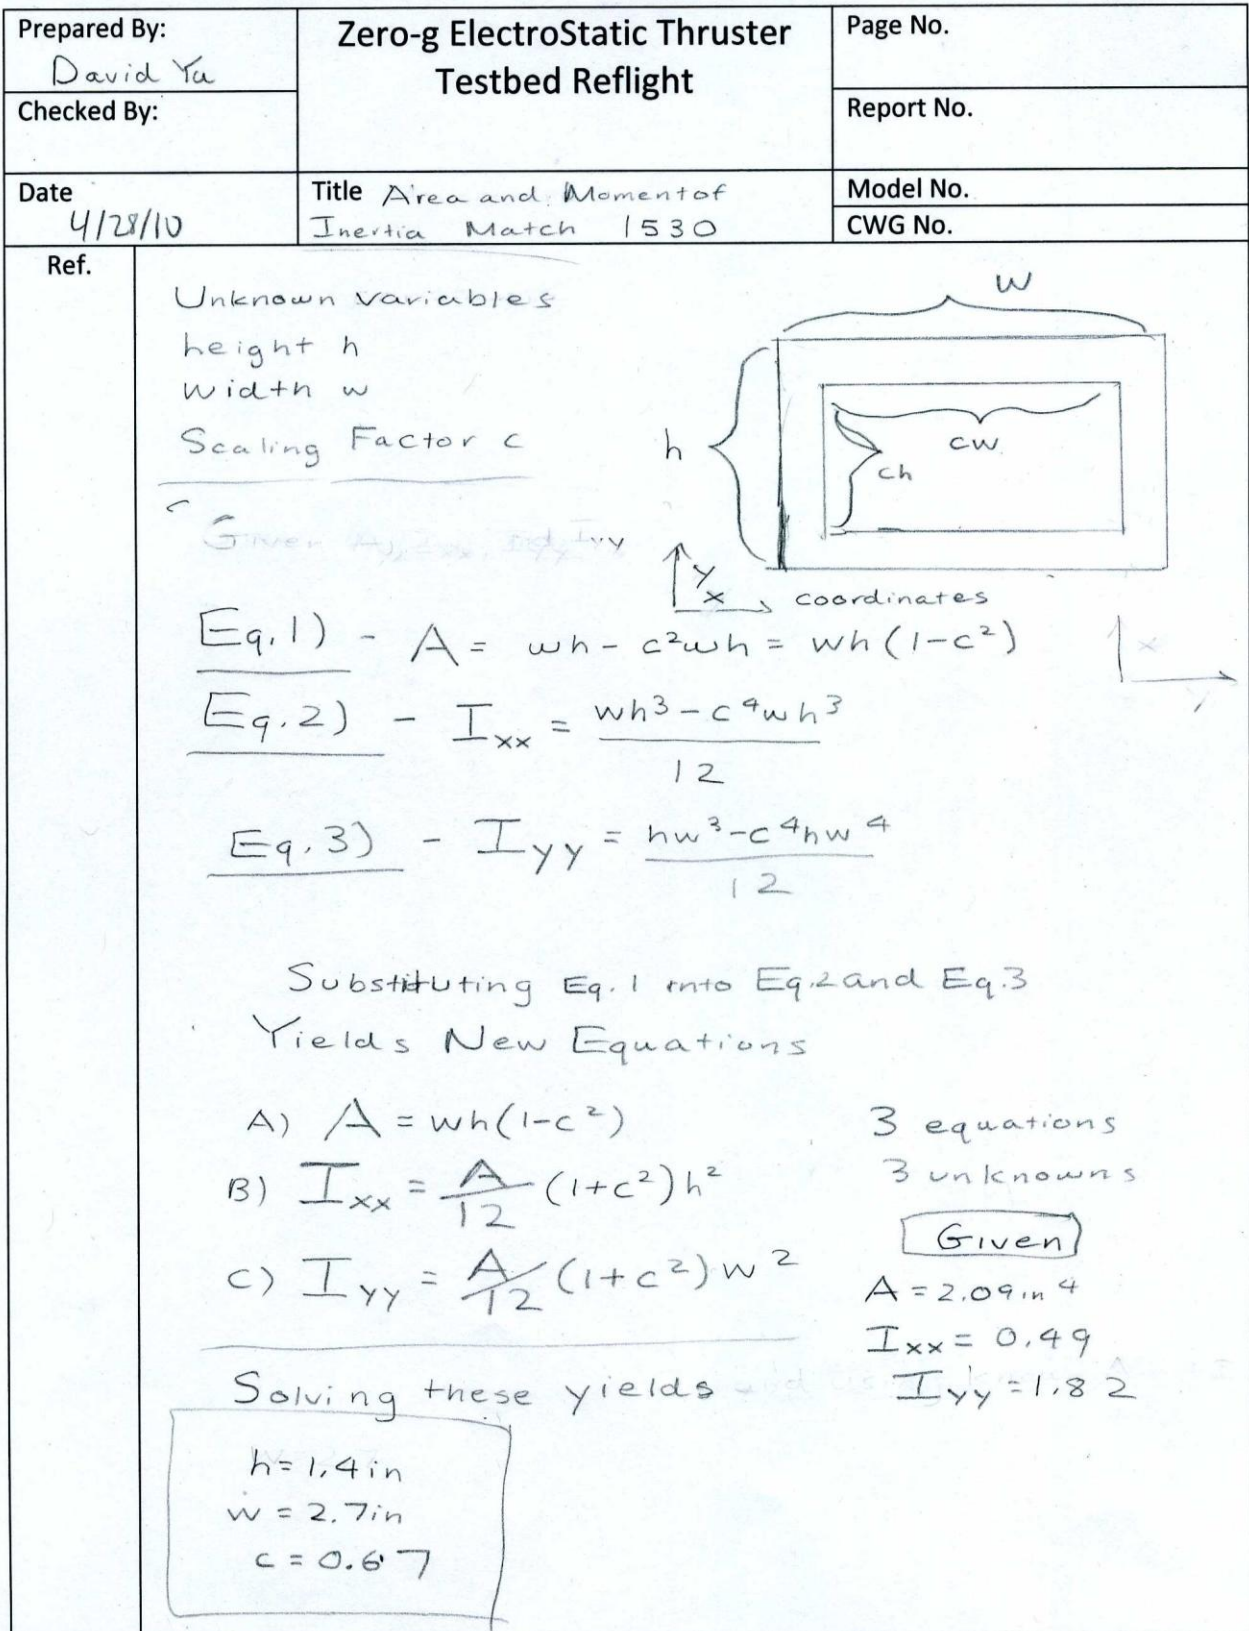 Prepared By:
David Yu
Zero-g ElectroStatic Thruster
Testbed Reflight
Page No.
Checked By:
Report No.
Date
4/28/10
Title Area and Moment of
Inertia Match 1530
Model No.
CWG No.
Ref.
Unknown variables
height h
width w
Scaling Factor c
w
h
cw
ch
Given A, Ixx, and Iyy
y
x
coordinates
x
y
Eq.1) - A = wh - c²wh = wh(1-c²)
Eq.2) - Ixx = wh³-c⁴wh³
12
Eq.3) - Iyy = hw³-c⁴hw⁴
12
Substituting Eq.1 into Eq.2 and Eq.3
Yields New Equations
A) A = wh(1-c²)
B) Ixx = A/12 (1+c²)h²
C) Iyy = A/12 (1+c²)w²
3 equations
3 unknowns
Given
A = 2.09in4
Ixx = 0.49
Iyy = 1.82
Solving these yields
h = 1.4in
w = 2.7in
c = 0.67